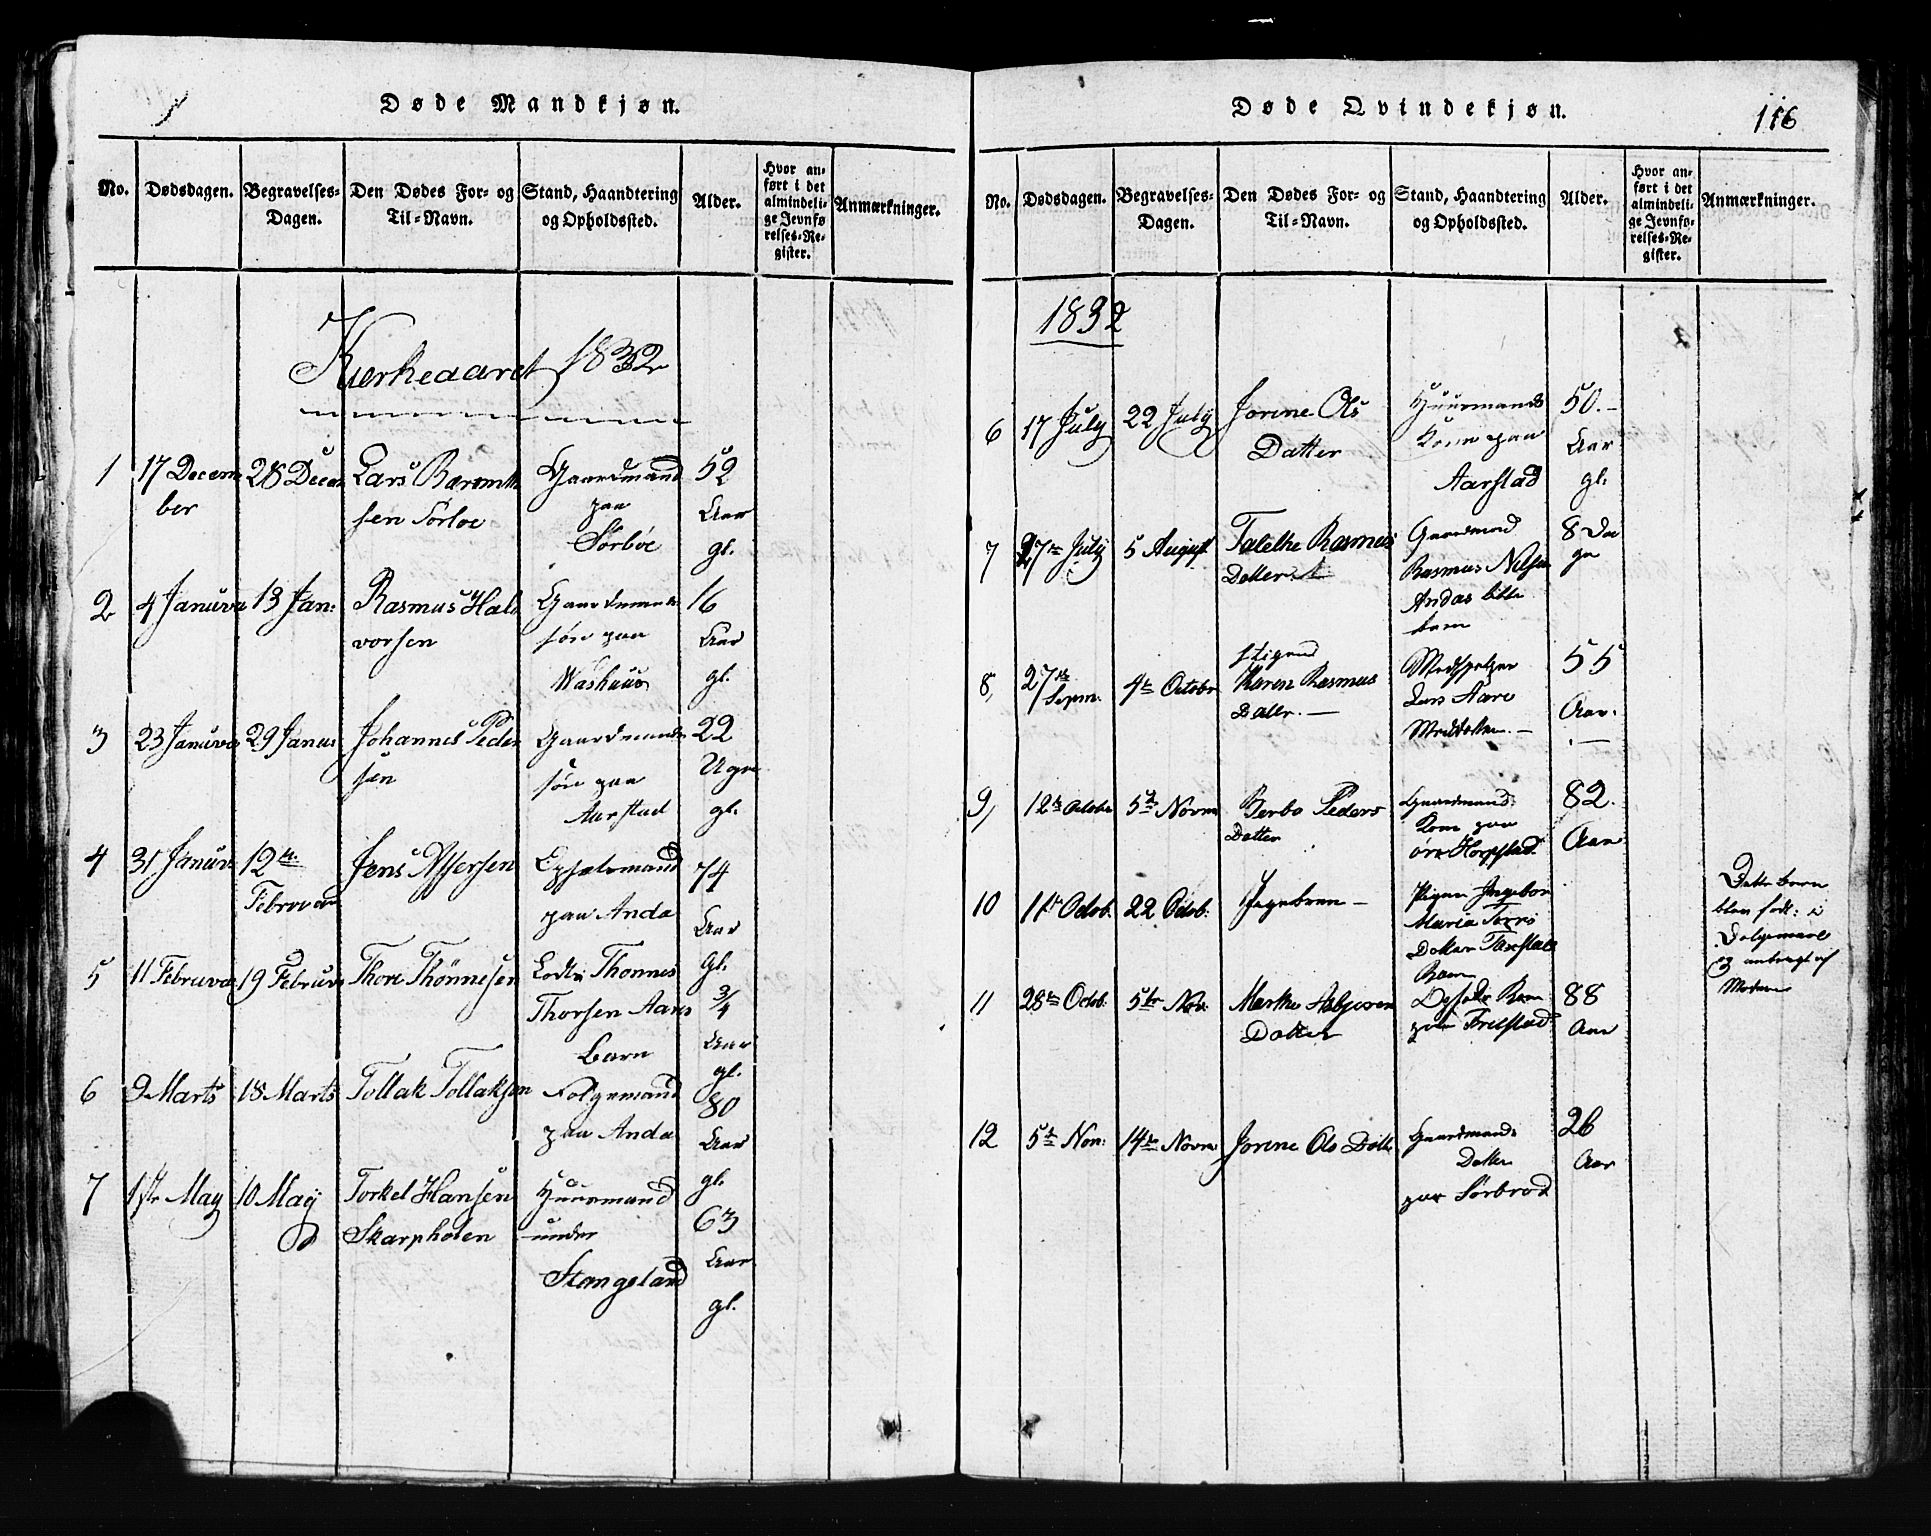 Døde Mandkjøn.
No. Dødsdagen. Begravelses-Dagen. Den Dødes For- og Til-Navn. Stand, Haandtering og Opholdssted. Alder. Hvor anført i det almindelige Jevnførelses-Register. Anmærkninger.
Kierkeaaret 1832
1 17 Decem 28 Decem Lars Gaardmand 52
ber sen Sørboe paa Aar
Sørboe gl.
2 4 Januva 13 Jan: Rasmus Hal Gaardmands 16
vorsen søn paa Aar
Washuus gl.
3 23 Januva 29 Januv Johannes Peder Gaardmands 22
sen søn paa Uger
Aarstad gl.
4 31 Januv 12te Jens Assersen 74
Februvar paa Anda Aar
gl.
5 11 Februva 19 Februv Thore Thönnesen Thonnes 3/4
Thorsen Aar
Barn gl.
6 9 Marts 18 Marts Tollak Tollaksen Folgemand 80
paa Anda Aar
gl.
7 1ste May 10 May Torkel Hansen Huusmand 63
Skarpholen under Aar
Stangeland gl.
Døde Qvindekjøn.
116
No. Dødsdagen. Begravelses-Dagen. Den Dødes For- og Til-Navn. Stand, Haandtering og Opholdssted. Alder. Hvor anført i det almindelige Jevnførelses-Register. Anmærkninger.
1832
6 17 July 22 July Jorine Ols Huusmands 50.
Datter Kone paa Aar
Aarstad gl.
7 27de July 5 August Talethe Rasmus Gaardmand 8 Da
Datter Rasmus Nilsen ge
Andas lille
barn
8, 27de 4de Octobr Karen Rasmus 55
Sepm. Datter. Lars Aar.
9, 12te Octobr 5te Novm Berbo Peders Gaardmands 82.
Datter Kone paa Aar
10 11te Octob. 22 Octob. Pigen Ingebor
Maria
Datter
Barn
Dette barn
blev født i
Dølgsmaal
og ombragt af
Moderen
11 28de Octob. 5te Nov. Marthe Asbjørn 88
Datter paa Friestad Aar
12 5te Nov: 14de Novm Jorine Ols Datte Gaardmands 26
Datter Aar
paa